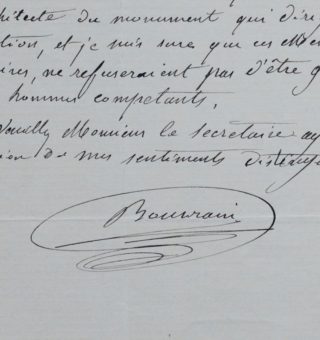 hitecte du monument qui diri
tion, et je suis sure que ces Me
ires, ne refuseraient pas d'être g
hommes competants.
Veuillez Monsieur le secrétaire ag
ion de mes sentiments distingu
Bouvrain